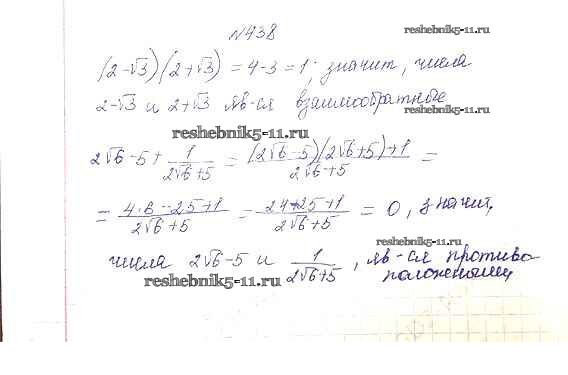 №438
reshebnik5-11.ru
(2-√3)(2+√3) = 4-3 = 1; значит, числа
2-√3 и 2+√3 яв-ся взаимообратные
reshebnik5-11.ru
2√6-5+ 1/(2√6+5) = ((2√6-5)(2√6+5)+1)/(2√6+5) =
= (4·6-25+1)/(2√6+5) = (24-25+1)/(2√6+5) = 0, значит,
reshebnik5-11.ru
числа 2√6-5 и 1/(2√6+5), яв-ся противо
положными
reshebnik5-11.ru
reshebnik5-11.ru